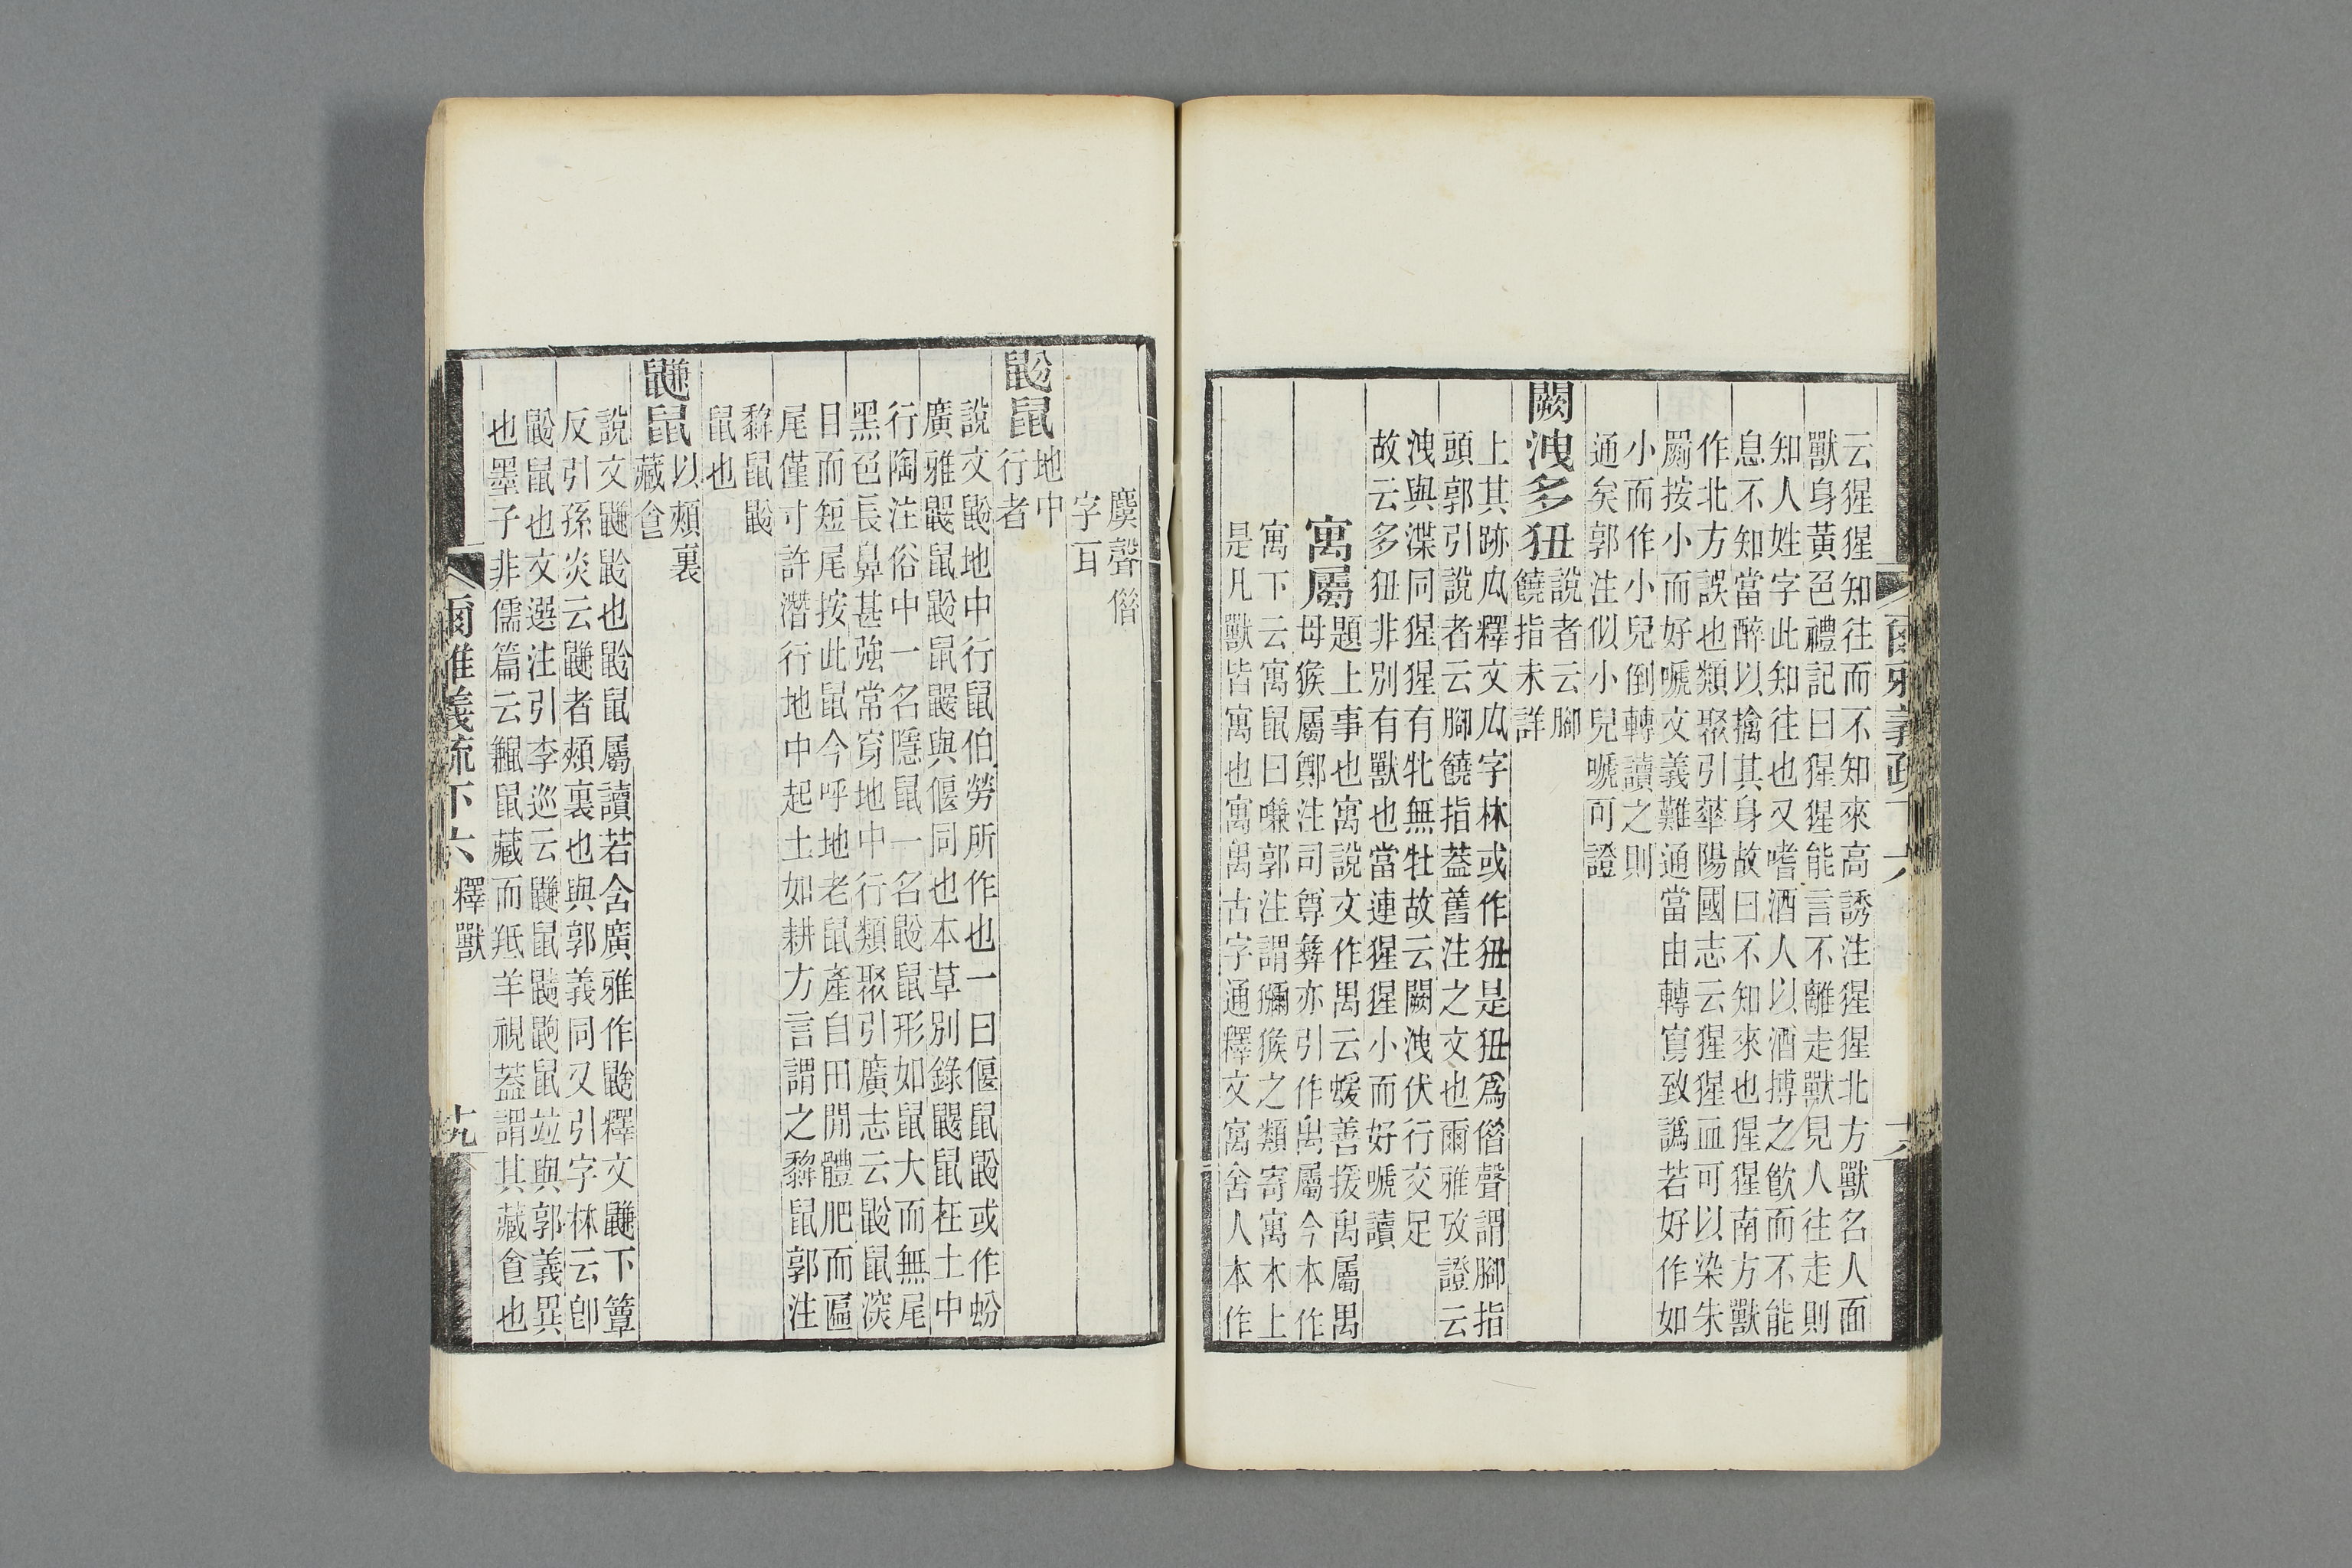 爾雅義疏下六
六
云猩猩知往而不知來高誘注猩猩北方獸名人面
獸身黃色禮記曰猩猩能言不離走獸見人往走則
知人姓字此知知往也又嗜酒人以酒搏之飲而不能
息不知當醉以擒其身故曰不知來也猩猩南方獸
作北方誤也類聚引華陽國志云猩猩血可以染朱
罽按小而好嗁文義難通當由轉寫致譌若好作如
小而作小兒倒轉讀之則
通矣郭注似小兒嗁可證
闕洩多狃
說者云腳
饒指未詳
上其跡瓜釋文瓜字林或作狃是狃爲偺聲謂腳指
頭郭引說者云腳饒指葢舊注之文也爾雅攷證云
洩與渫同猩猩有牝無牡故云闕洩伏行交足
故云多狃非別有獸也當連猩猩小而好嗁讀
寓屬
題上事也寓說文作禺云蝯善援禺屬禺
母猴屬鄭注司尊彝亦引作禺屬今本作
寓下云寓鼠曰嗛郭注謂獼猴之類寄寓木上
是凡獸皆寓也寓禺古字通釋文寓舍人本作
麌聲偺
字耳
鼢鼠
地中
行者
說文鼢地中行鼠伯勞所作也一曰偃鼠鼢或作蚡
廣雅鼴鼠鼢鼠鼴與偃同也本草別錄鼴鼠在土中
行陶注俗中一名隱鼠一名鼢鼠形如鼠大而無尾
黑色長鼻甚強常穿地中行類聚引廣志云鼢鼠深
目而短尾按此鼠今呼地老鼠產自田閒體肥而匾
尾僅寸許潛行地中起土如耕方言謂之鼢鼠郭注
鼢鼠鼢
鼠也
鼸鼠
以頰裏
藏食
說文鼸鼢也鼢鼠屬讀若含廣雅作鼢釋文鼸下簟
反引孫炎云鼸者頰裏也與郭義同又引字林云卽
鼢鼠也文選注引李巡云鼸鼠鼷鼩鼠竝與郭義異
也墨子非儒篇云鼸鼠藏而羝羊視葢謂其藏食也
爾雅義疏下六
釋獸
十九